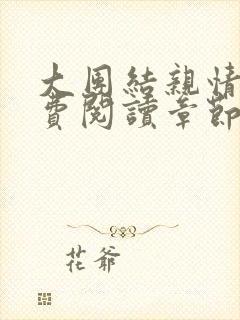 大團結親情
費閱讀章節
花爺